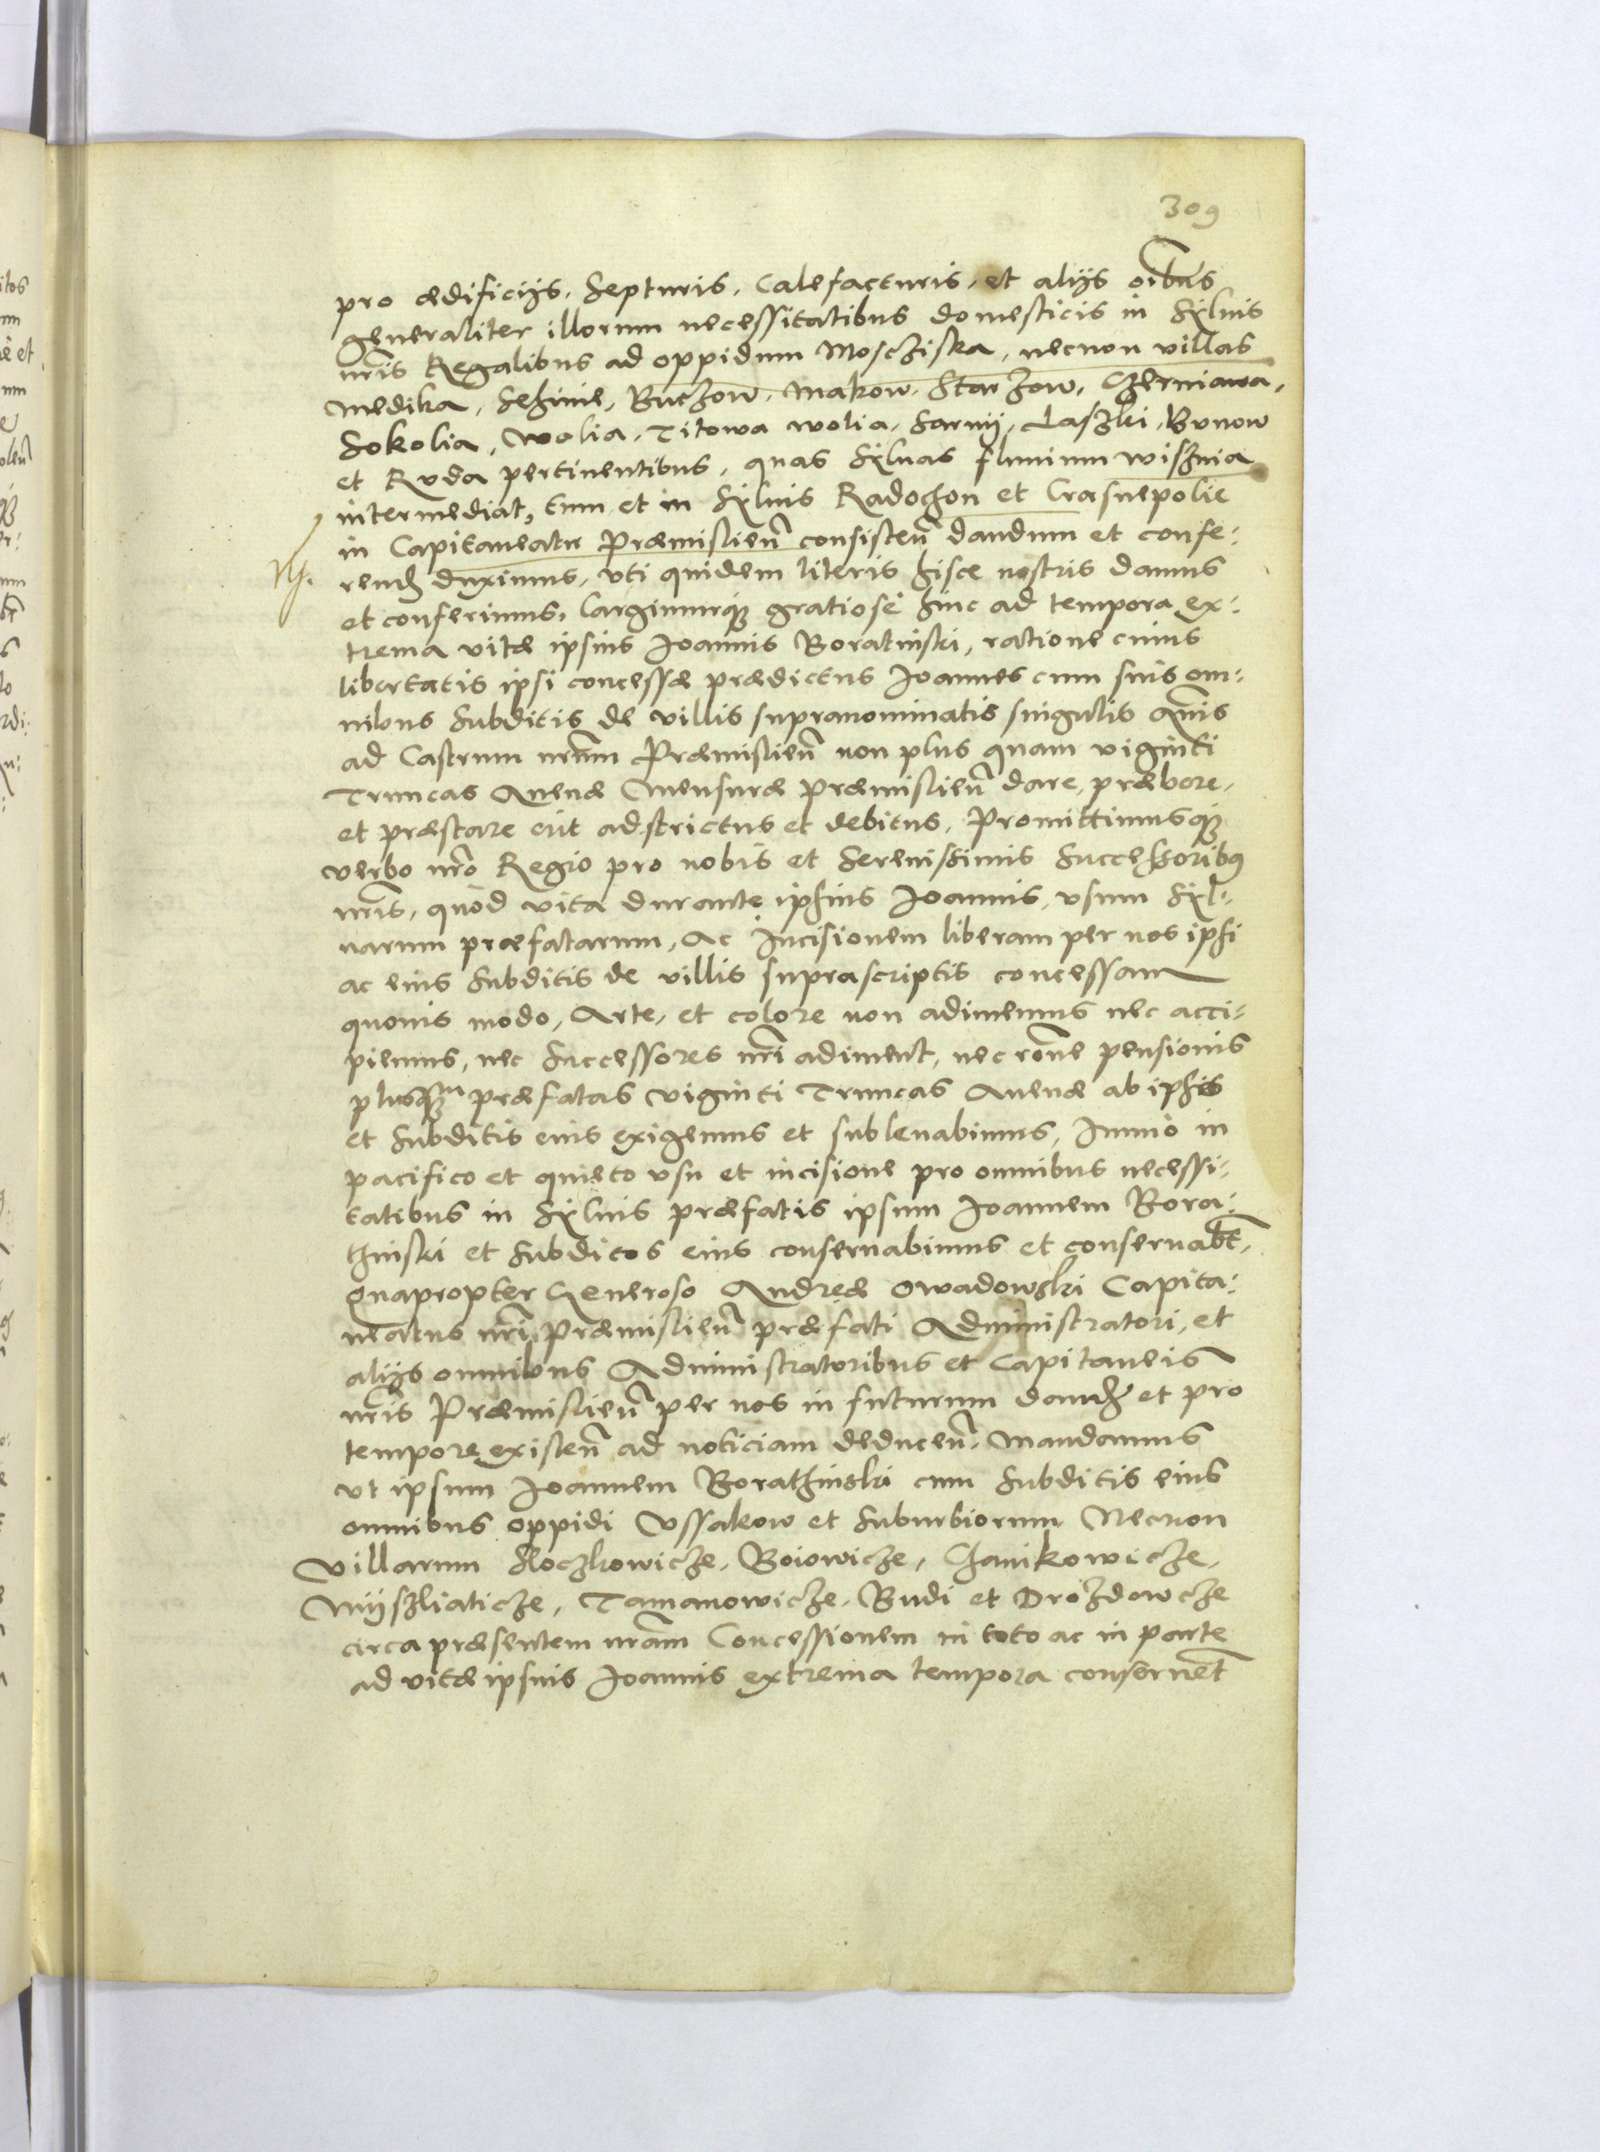 309
pro ædificijs, Septuris, Calefacturis, et alijs oibus
generaliter illorum necessitatibus domesticis in Sÿluis
nris Regalibus ad oppidum Mosciska, necnon villas
Medika, Sehinie, Buczow, Makow, Starzow, Czerniawa,
Sokolia, Wolia, Titowa wolia, Sarnÿ, Laszki, Bunow
et Ruda pertinentibus, quas Sÿluas fluuium Wisznia
intermediat, tum et in Sÿluis Radochon et Crasnepolie
in Capitaneatu Præmislien consisten dandum et confe-
rend duximus, vti quidem literis hisce nostris damus
et conferimus, largimurque gratiose hinc ad tempora ex-
trema vitæ ipsius Joannis Boratinski, ratione cuius
libertatis ipsi concessæ prædictus Joannes cum suis om-
nibus subditis de villis supranominatis singulis Annis
ad Castrum nrum Præmislien non plus quam viginti
Truncas Auenæ Mensuræ Præmislien dare, præbere,
et præstare erit adstrictus et debitus. Promittimusque
verbo nro Regio pro nobis et Serenissimis Successoribus
nris, quod vita durante ipsius Joannis, vsum Sÿl-
uarum præfatarum, Ac Incisionem liberam per nos ipsi
ac eius subditis de villis suprascriptis concessam
quouis modo, Arte, et colore non adimemus nec acci-
piemus, nec Successores nri adiment, nec rone pensionis
plusquam præfatas viginti Truncas Auenæ ab ipsis
et subditis eius exigemus et subleuabimus, Immo in
pacifico et quieto vsu et incisione pro omnibus necessi-
tatibus in Sÿluis præfatis ipsum Joannem Bora-
thinski et subditos eius conseruabimus et conseruabt,
Quapropter Generoso Andreæ Owadowski Capita-
neatus nri Præmislien præfati Administratori, et
alijs omnibus Administratoribus et Capitaneis
nris Præmislien per nos in futurum dand et pro
tempore existen ad noticiam deducen. Mandamus
vt ipsum Joannem Borathinski cum Subditis eius
omnibus oppidi Vssakow et Suburbiorum Necnon
Villarum Hoczkowicze, Boiowicze, Chanikowicze,
Mÿszliaticze, Tamanowicze, Budi et Drozdowcze
circa præsentem nram Concessionem in toto ac in parte
ad vitæ ipsius Joannis extrema tempora conseruet